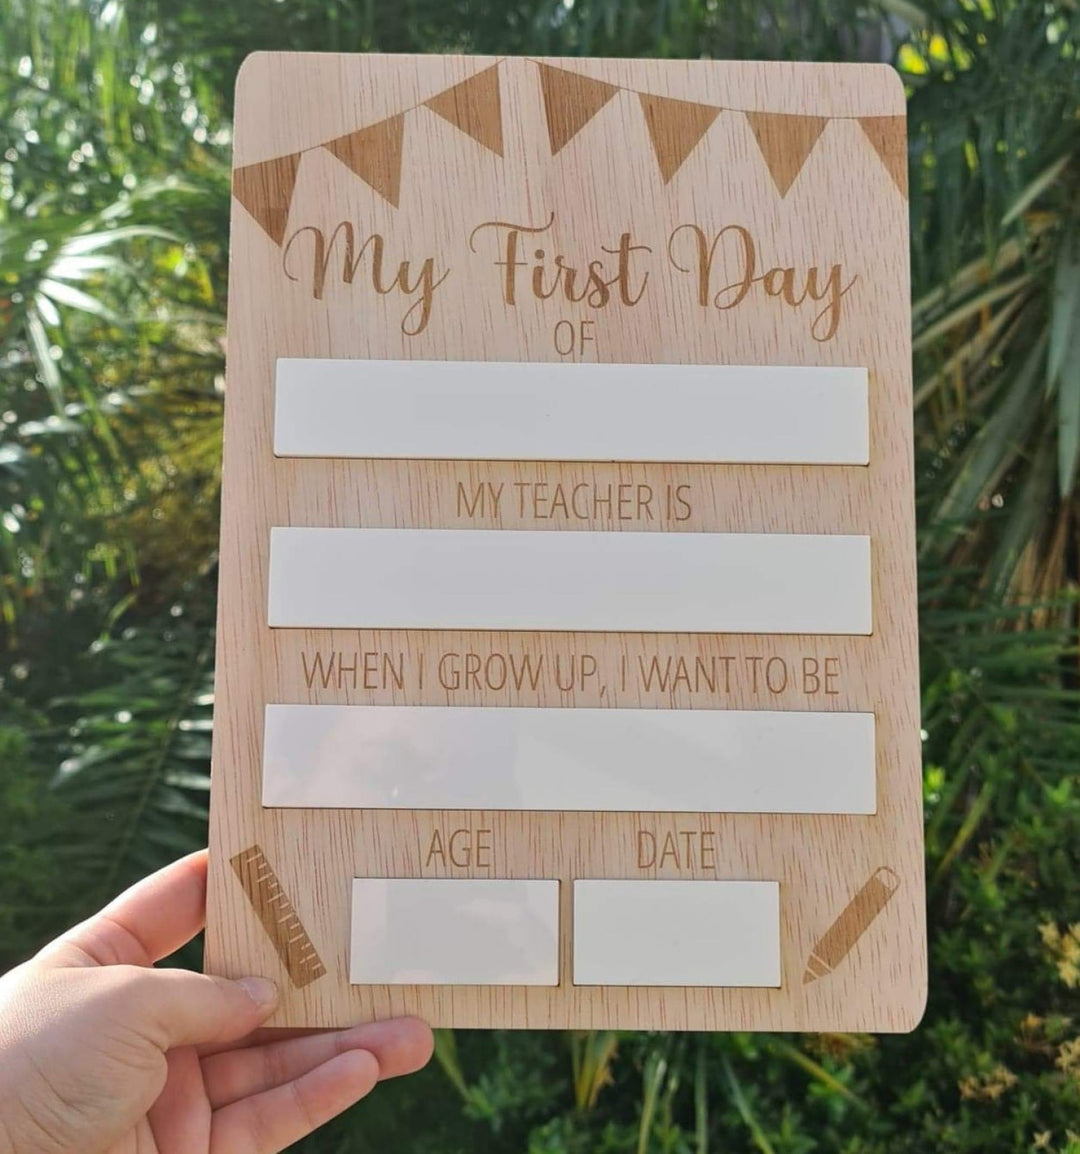 My First Day
OF
MY TEACHER IS
WHEN I GROW UP, I WANT TO BE
AGE DATE